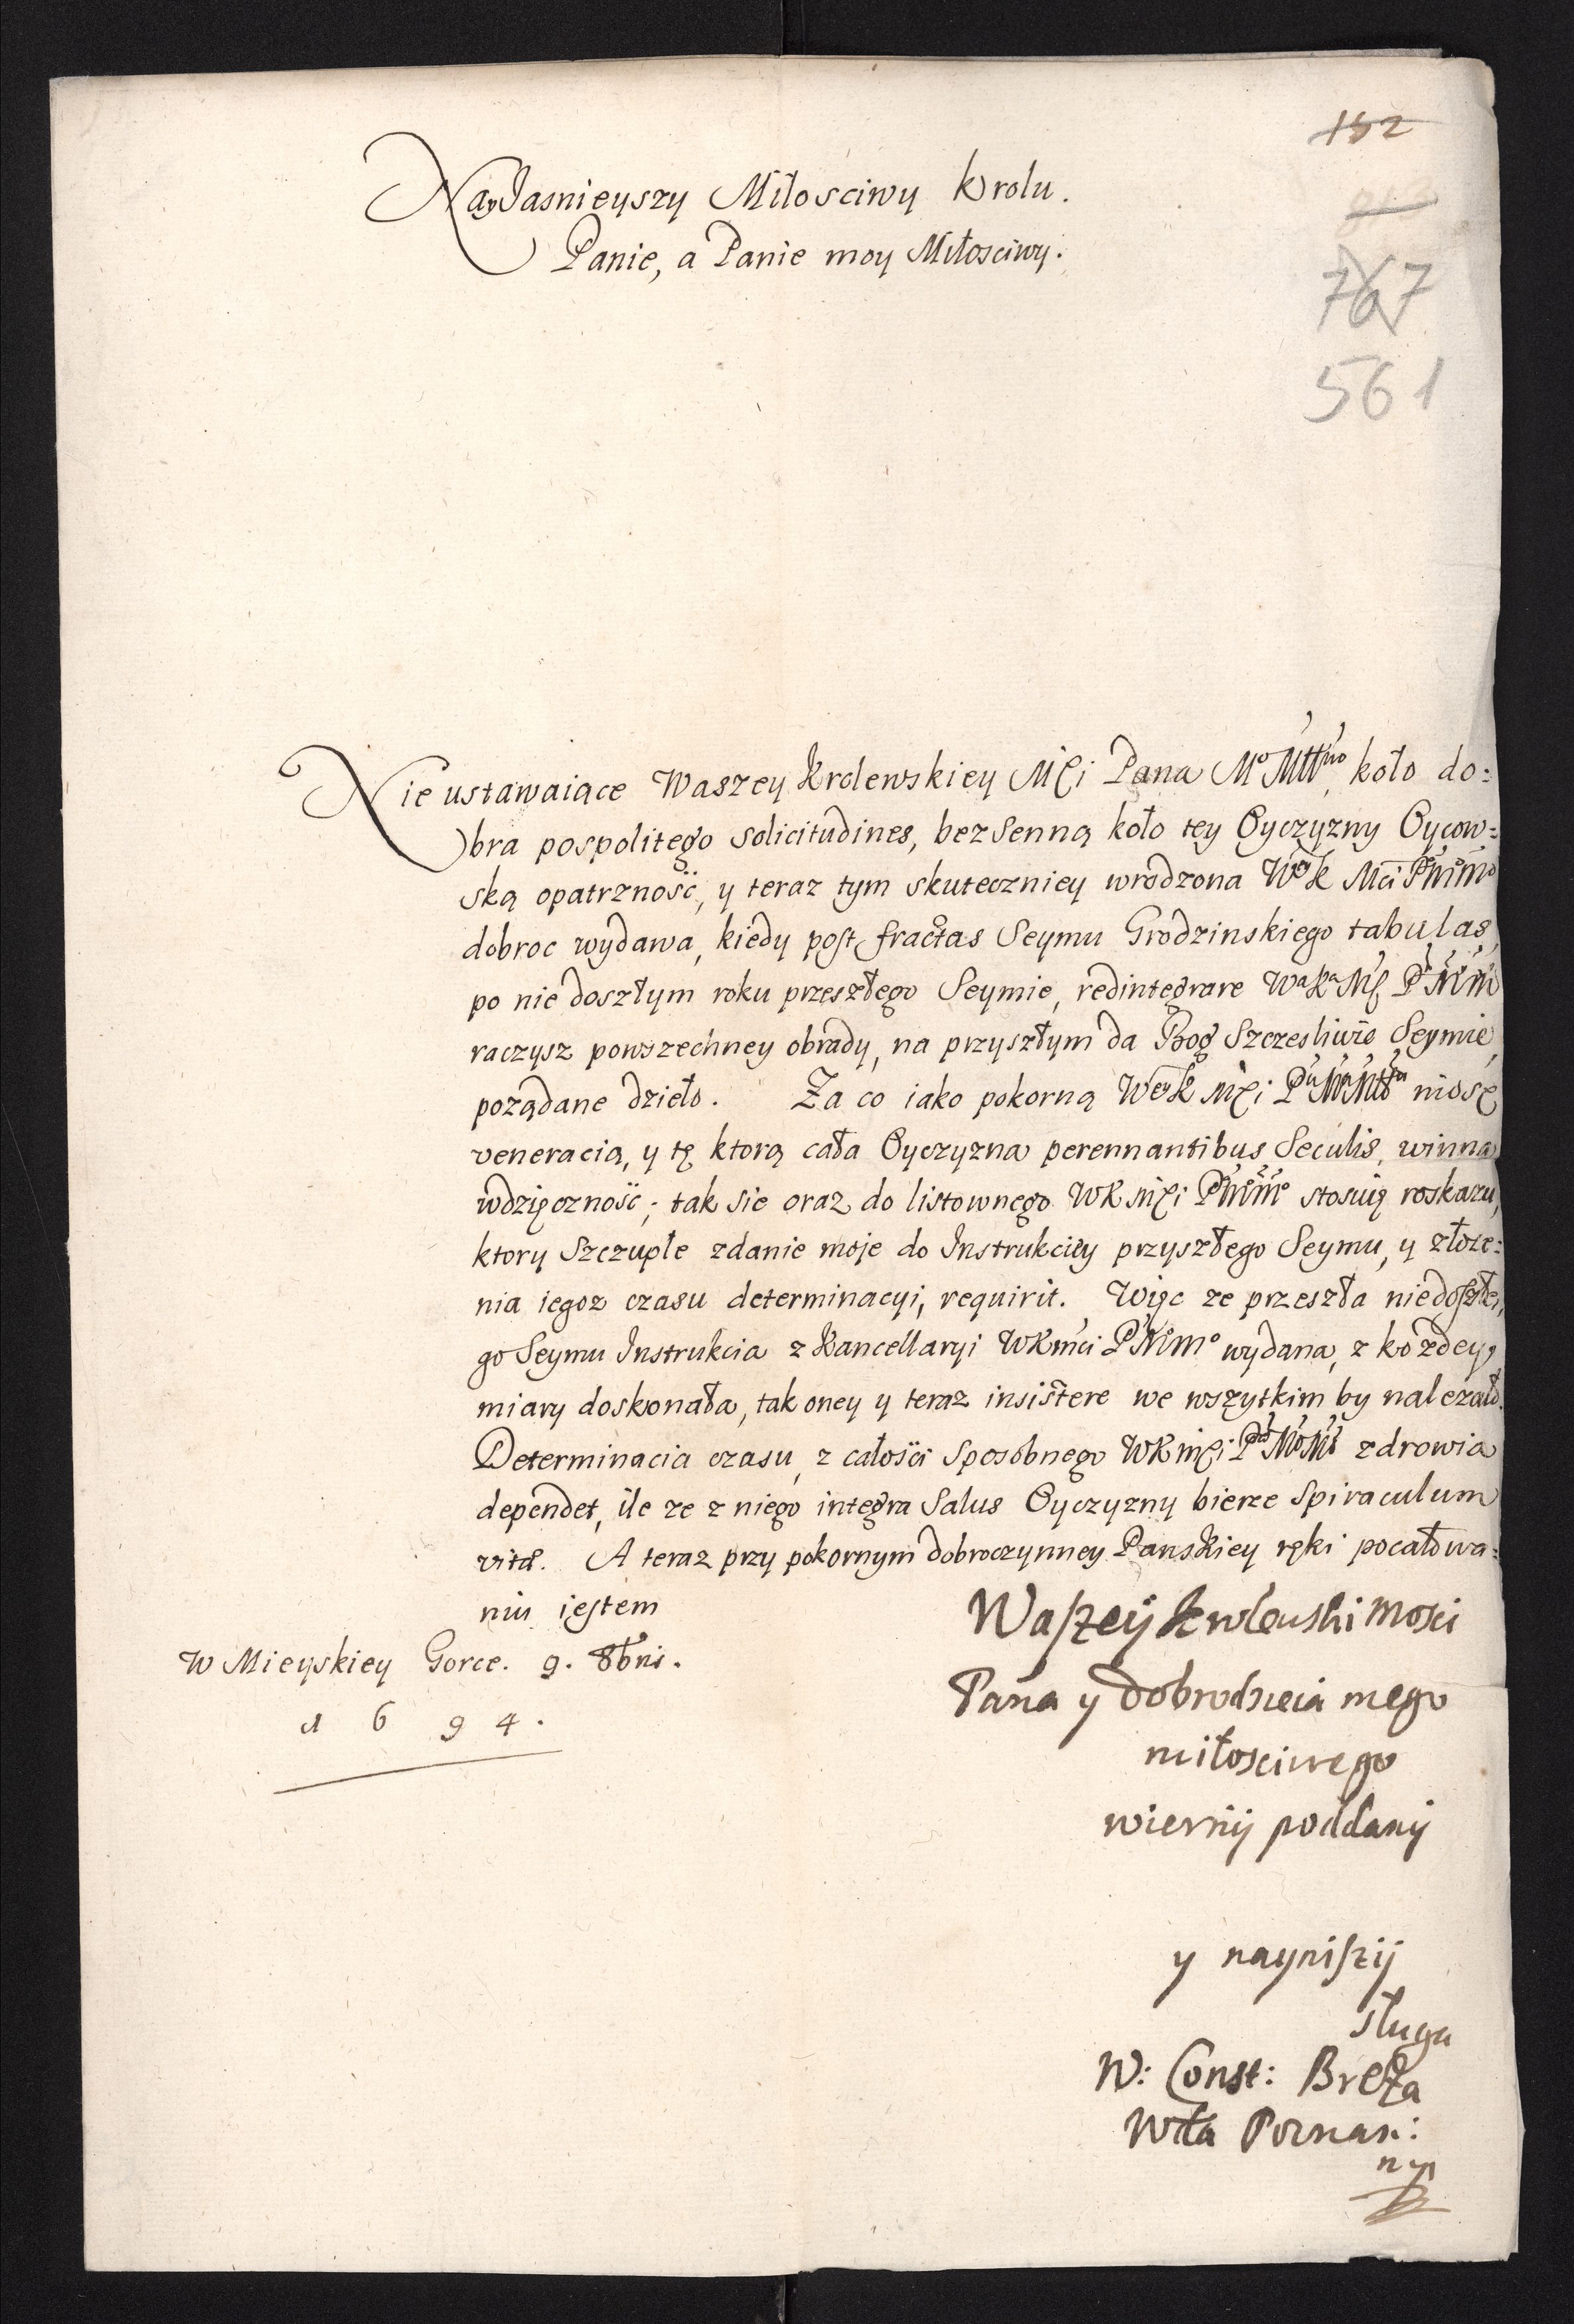 152
767
561
NayJasnieyszy Miłosciwy Krolu.
Panie, a Panie moy Miłosciwy.
Nie ustawaiące Waszey Krolewskiey Mści Pana koło do:
bra pospolitego solicitudines, bezsenną koło tey Oyczyzny Oycow=
ską opatrzność, y teraz tym skuteczniey wrodzona
dobroc wydawa, kiedy post fractas Seymu Grodzinskiego tabulas,
po nie doszłym roku przeszłego Seymie, redintegrare
raczysz powszechney obrady, na przyszłym da Bog Szczesliwie Seymie,
pożądane dzieło. Za co iako pokorną niosę
veneracią, y tę ktorą cała Oyczyzna perennantibus Seculis, winna
wdzięczność; tak sie oraz do listownego stosuię roskazu,
ktory Szczupłe zdanie moje do Instrukciey przyszłego Seymu, y złoże:
nia iegoz czasu determinacyi, requirit. Więc ze przeszła niedoszłe,
go Seymu Instrukcia z Kancellaryi WKmci wydana, z kożdey,
miary doskonała, tak oney y teraz insistere we wszytkim by nalezało.
Determinacia czasu, z całości sposobnego zdrowia
dependet, ile ze z niego integra Salus Oyczyzny bierze spiraculum
vitæ. A teraz przy pokornym dobroczynney Panskiey ręki pocałowa=
niu iestem
Waszey Krolewski Mosci
W Mieyskiey Gorce. 9. 8bris.
1694.
Pana y dobrodzieia mego
miłosciwego
wierny poddany
y nayniszy
sługa
W: Const: Breza
Wda Poznan: